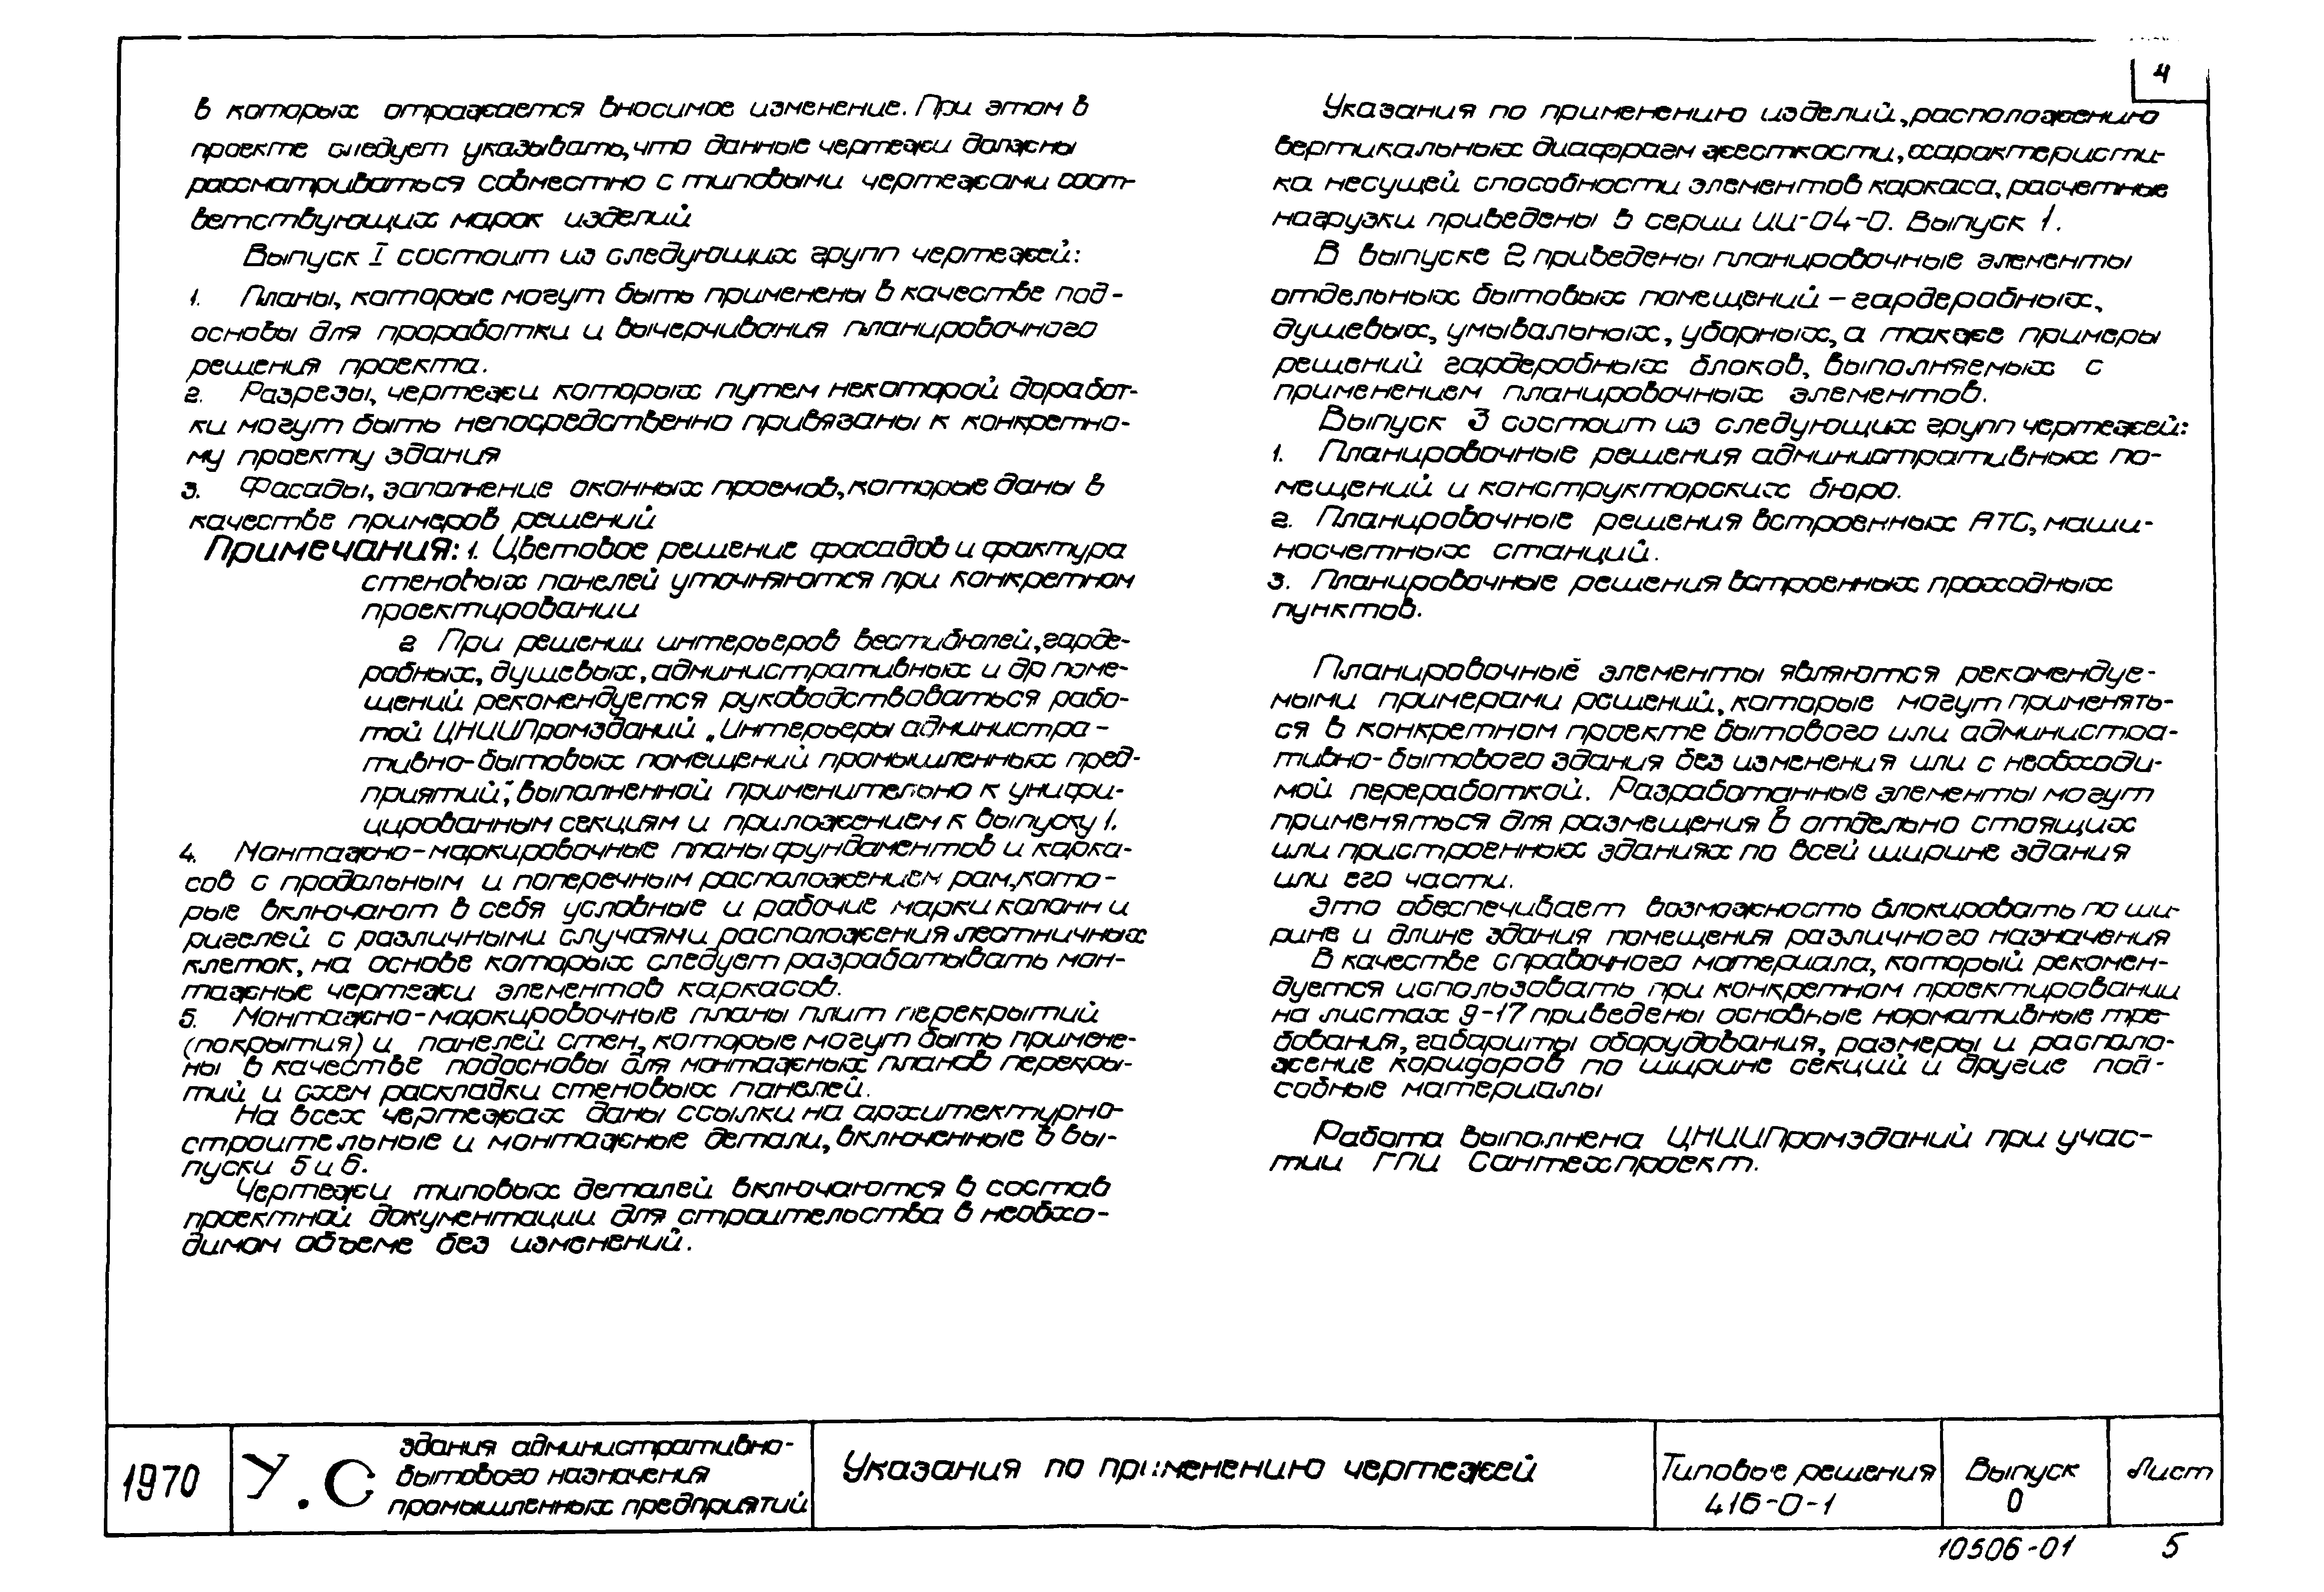 4
в которых отражается вносимое изменение. При этом в
проекте следует указывать, что данные чертежи должны
рассматриваться совместно с типовыми чертежами соот-
ветствующих марок изделий
Выпуск I состоит из следующих групп чертежей:
1. Планы, которые могут быть применены в качестве под-
основы для проработки и вычерчивания планировочного
решения проекта.
2. Разрезы, чертежи которых путем некоторой доработ-
ки могут быть непосредственно привязаны к конкретно-
му проекту здания
3. Фасады, заполнение оконных проемов, которые даны в
качестве примеров решений
Примечания: 1. Цветовое решение фасадов и фактура
стеновых панелей уточняются при конкретном
проектировании
2 При решении интерьеров вестибюлей, гарде-
робных, душевых, административных и др поме-
щений рекомендуется руководствоваться рабо-
той ЦНИИПромзданий „Интерьеры администра-
тивно-бытовых помещений промышленных пред-
приятий", выполненной применительно к унифи-
цированным секциям и приложением к выпуску 1.
4. Монтажно-маркировочные планы фундаментов и карка-
сов с продольным и поперечным расположением рам, кото-
рые включают в себя условные и рабочие марки колонн и
ригелей с различными случаями расположения лестничных
клеток, на основе которых следует разрабатывать мон-
тажные чертежи элементов каркасов.
5. Монтажно-маркировочные планы плит перекрытий
(покрытия) и панелей стен, которые могут быть примене-
ны в качестве подосновы для монтажных планов перекры-
тий и схем раскладки стеновых панелей.
На всех чертежах даны ссылки на архитектурно-
строительные и монтажные детали, включенные в вы-
пуски 5 и 6.
Чертежи типовых деталей включаются в состав
проектной документации для строительства в необхо-
димом объеме без изменений.
Указания по применению изделий, расположению
вертикальных диафрагм жесткости, характеристи-
ка несущей способности элементов каркаса, расчетные
нагрузки приведены в серии ИИ-04-0. Выпуск 1.
В выпуске 2 приведены планировочные элементы
отдельных бытовых помещений – гардеробных,
душевых, умывальных, уборных, а также примеры
решений гардеробных блоков, выполняемых с
применением планировочных элементов.
Выпуск 3 состоит из следующих групп чертежей:
1. Планировочные решения административных по-
мещений и конструкторских бюро.
2. Планировочные решения встроенных АТС, маши-
носчетных станций.
3. Планировочные решения встроенных проходных
пунктов.
Планировочные элементы являются рекомендуе-
мыми примерами решений, которые могут применять-
ся в конкретном проекте бытового или администра-
тивно-бытового здания без изменения или с необходи-
мой переработкой. Разработанные элементы могут
применяться для размещения в отдельно стоящих
или пристроенных зданиях по всей ширине здания
или его части.
Это обеспечивает возможность блокировать по ши-
рине и длине здания помещения различного назначения
В качестве справочного материала, который рекомен-
дуется использовать при конкретном проектировании
на листах 9-17 приведены основные нормативные тре-
бования, габариты оборудования, размеры и располо-
жение коридоров по ширине секций и другие под-
собные материалы
Работа выполнена ЦНИИПромзданий при учас-
тии ГПИ Сантехпроект.
1970
У.С
здания административно-
бытового назначения
промышленных предприятий
Указания по применению чертежей
Типовые решения
416-0-1
Выпуск
0
Лист
10506-01 5